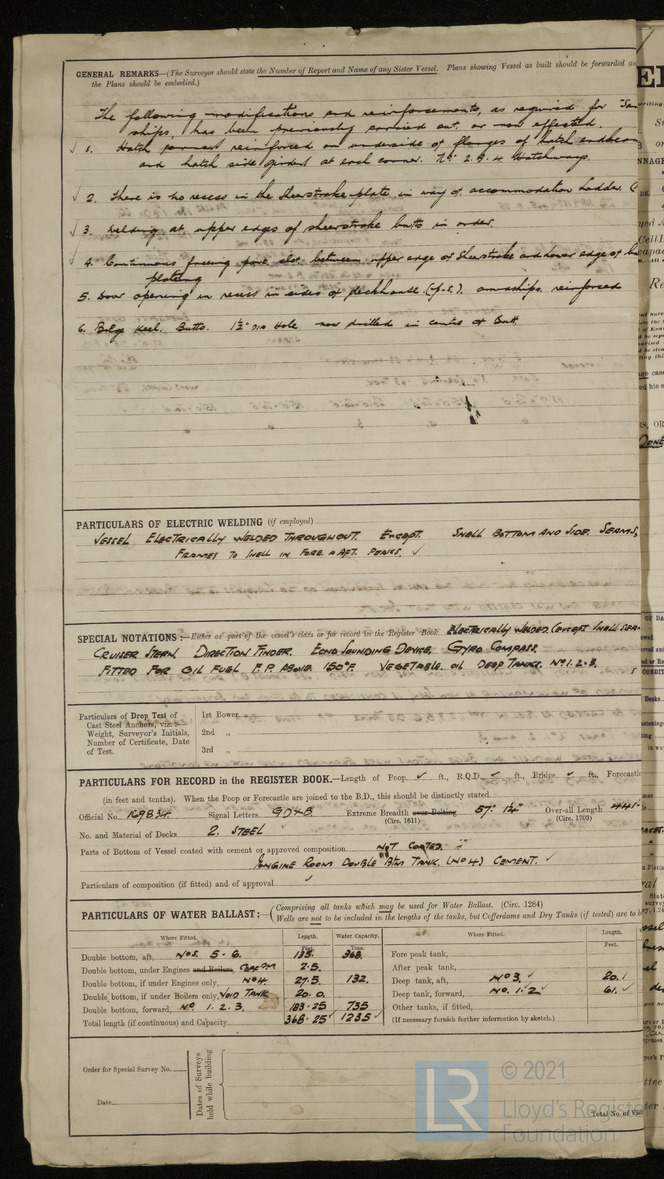 GENERAL REMARKS—(The Surveyor should state the Number of Report and Name of any Sister Vessel. Plans showing Vessel as built should be forwarded
the Plans should be embodied.)
The following modifications and reinforcements, as required for
ships, has been previously carried out, or now effected.
1. Hatch reinforced on underside of flanges of hatch
and hatch side girders at each corner. Nos 2.3.4 Hatchways.
2. There is no recess in the sheerstrake plate in way of accommodation ladder.
3. Welding at upper edges of sheerstrake butts in order.
4. Continuous freeing port slot between upper edge of sheerstrake and lower edge of
plating
5. Door opening in recess in sides of deckhouse (p.s.), amidships, reinforced
6. Bilge Keel. Butts. 1½" dia Hole now drilled in centre of Butt.
PARTICULARS OF ELECTRIC WELDING (if employed)
VESSEL ELECTRICALLY WELDED THROUGHOUT. EXCEPT. SHELL BOTTOM AND SIDE SEAMS,
FRAMES TO SHELL IN FORE & AFT. PEAKS. ✓
SPECIAL NOTATIONS:—Either as part of the vessel's class or for record in the Register Book ELECTRICALLY WELDED (EXCEPT SHELL
CRUISER STERN. DIRECTION FINDER. ECHO SOUNDING DEVICE, GYRO COMPASS.
FITTED FOR OIL FUEL F.P. ABOVE. 150°F. VEGETABLE. OIL DEEP TANKS. Nos 1.2.3,
Particulars of Drop Test of
Cast Steel Anchors, viz.:—
Weight, Surveyor's Initials,
Number of Certificate, Date
of Test.
1st Bower
2nd ,,
3rd ,,
PARTICULARS FOR RECORD in the REGISTER BOOK.—Length of Poop ✓ ft., R.Q.D. ✓ ft., Bridge ✓ ft., Forecastle
(in feet and tenths). When the Poop or Forecastle are joined to the B.D., this should be distinctly stated
Official No. 169834 Signal Letters Extreme Breadth over Belting 57' 1¼" Over-all Length 441'
(Circ. 1611) (Circ. 1703)
No. and Material of Decks 2. STEEL
Parts of Bottom of Vessel coated with cement or approved composition NOT COATED.
ENGINE ROOM DOUBLE BTM TANK. (No 4) CEMENT. ✓
Particulars of composition (if fitted) and of approval ✓
PARTICULARS OF WATER BALLAST:— (Comprising all tanks which may be used for Water Ballast. (Circ. 1284)
Wells are not to be included in the lengths of the tanks, but Cofferdams and Dry Tanks (if tested) are to
Where Fitted. Length. Water Capacity. Where Fitted. Length.
Feet. Tons. Feet.
Double bottom, aft, Nos. 5 - 6. 135. 368. Fore peak tank,
Double bottom, under Engines and Boilers, COFFDM 2.5. After peak tank,
Double bottom, if under Engines only, No 4. 27.5 132. Deep tank, aft, No 3. ✓ 20. ✓
Double bottom, if under Boilers only, VOID TANK 20.0. Deep tank, forward, No. 1.2 ✓ 61. ✓
Double bottom, forward, No 1.2.3. 183.25 735 Other tanks, if fitted,
Total length (if continuous) and Capacity 368.25 1235 ✓ (If necessary furnish further information by sketch.)
Order for Special Survey No.
Date
Dates of Surveys
held while building
© 2021
Lloyd's Register
Foundation
Total No. of